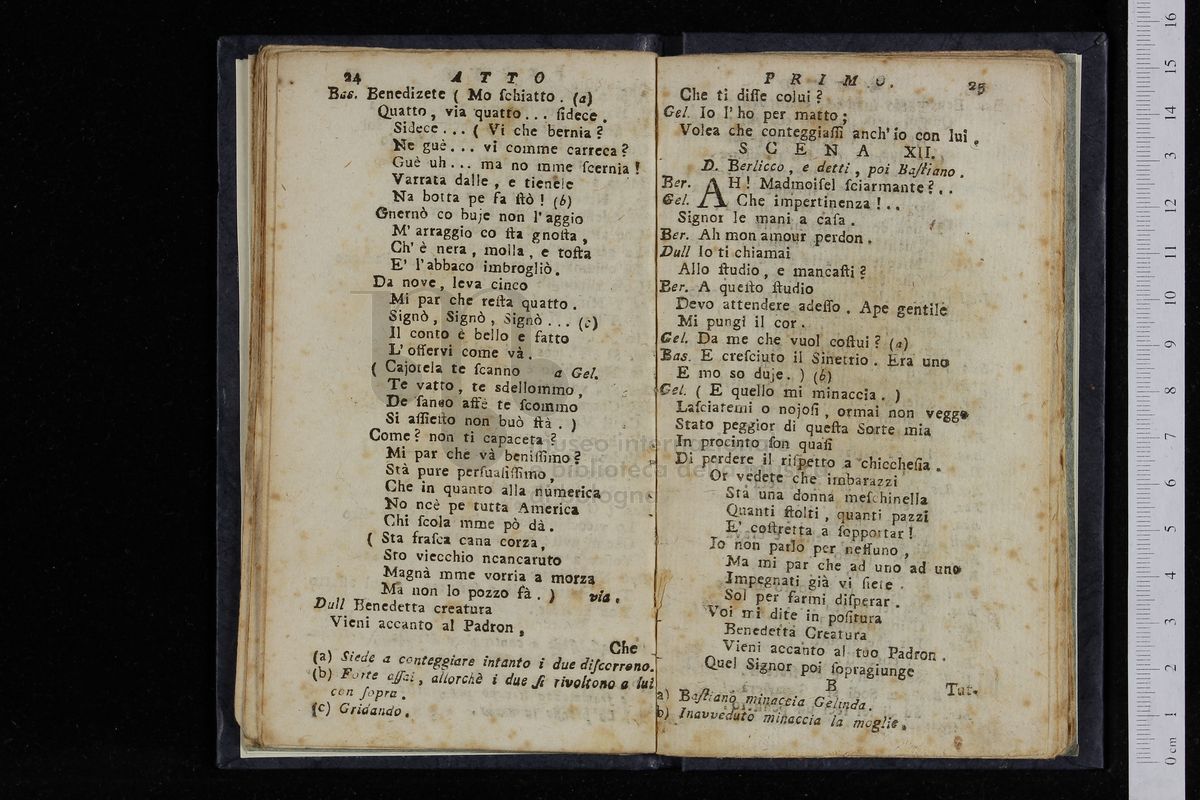 24 ATTO
Bas. Benedizete ( Mo ſchiatto . (a)
Quatto , via quatto . . . ſidece .
Sidece . . . ( Vi che bernia ?
Ne guè . . . vi comme carreca ?
Guè uh . . . ma no mme ſcernia !
Varrata dalle , e tienele
Na botta pe fa ſtò ! (b)
Gnernò co buje non l'aggio
M' arraggio co ſta gnoſta ,
Ch' è nera , molla , e toſta
E' l'abbaco imbrogliò .
Da nove , leva cinco
Mi par che reſta quatto .
Signò , Signò , Signò . . . (c)
Il conto è bello e fatto
L' oſſervi come và .
( Cajotela te ſcanno a Gel.
Te vatto , te sdellommo ,
De ſango affè te ſcommo
Si aſſietto non buò ſtà . )
Come ? non ti capaceta ?
Mi par che và beniſſimo ?
Stà pure perſualiſſimo ,
Che in quanto alla numerica
No ncè pe tutta America
Chi ſcola mme pò dà .
( Sta fraſca cana corza ,
Sto viecchio ncancaruto
Magnà mme vorria a morza
Ma non lo pozzo fà . ) via .
Dull Benedetta creatura
Vieni accanto al Padron ,
Che
(a) Siede a conteggiare intanto i due diſcorreno.
(b) Forte aſſai , allorchè i due ſi rivoltono a lui
con ſopra .
(c) Gridando .
PRIMO. 25
Che ti diſſe colui ?
Gel. Io l' ho per matto ;
Volea che conteggiaſſi anch' io con lui .
SCENA XII.
D. Berlicco , e detti , poi Baſtiano .
Ber. AH ! Madmoiſel ſciarmante ? . .
Gel. Che impertinenza ! . .
Signor le mani a caſa .
Ber. Ah mon amour perdon .
Dull Io ti chiamai
Allo ſtudio , e mancaſti ?
Ber. A queſto ſtudio
Devo attendere adeſſo . Ape gentile
Mi pungi il cor .
Gel. Da me che vuol coſtui ? (a)
Bas. E creſciuto il Sinetrio . Era uno
E mo so duje . ) (b)
Gel. ( E quello mi minaccia . )
Laſciatemi o nojoſi , ormai non veggo
Stato peggior di queſta Sorte mia
In procinto ſon quaſi
Di perdere il riſpetto a chiccheſia .
Or vedete che imbarazzi
Stà una donna meſchinella
Quanti ſtolti , quanti pazzi
E' coſtretta a ſopportar !
Io non parlo per neſſuno ,
Ma mi par che ad uno ad uno
Impegnati già vi ſiete .
Sol per farmi diſperar .
Voi mi dite in poſitura
Benedetta Creatura
Vieni accanto al tuo Padron .
Quel Signor poi ſopragiunge
B Tut-
a) Baſtiano minaccia Gelinda .
b) Inavveduto minaccia la moglie .